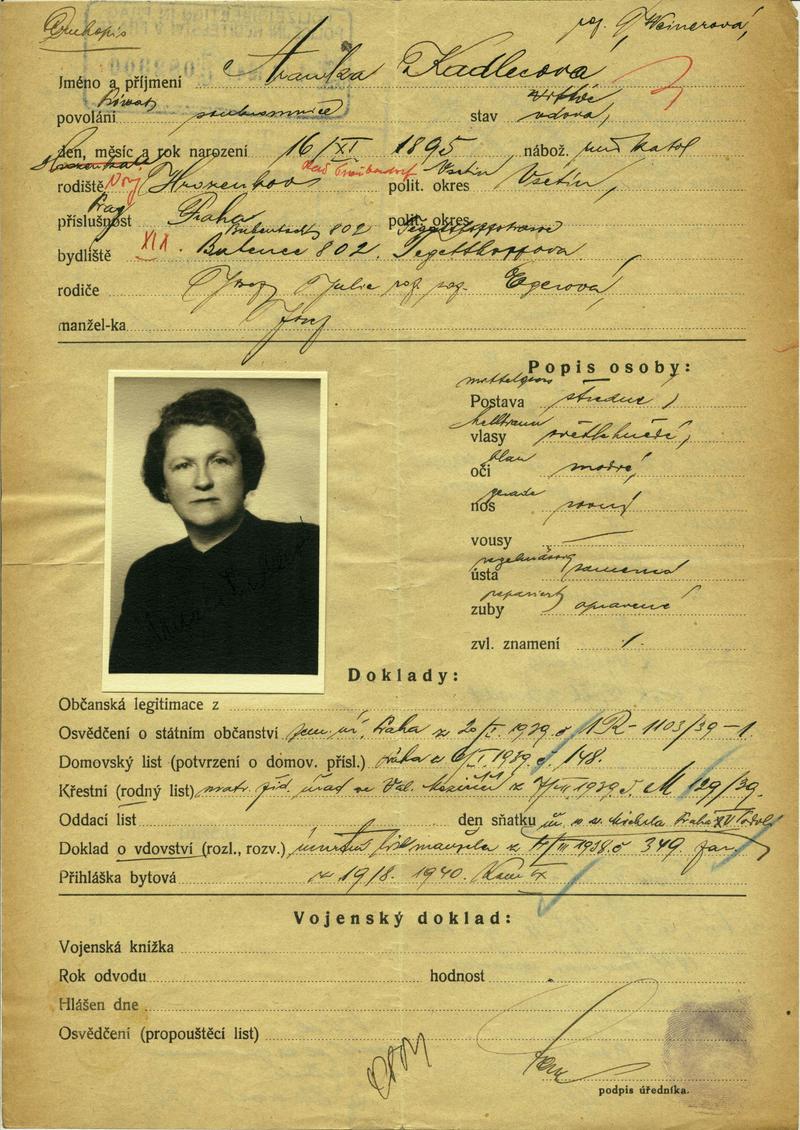 Druhopis roz. Weinerová,
Jméno a příjmení Kadlecová
Privat
povolání soukromnice stav vdova,
den, měsíc a rok narození 16/XI 1895 nábož. katol
Vsetin
rodiště Hrozenkov polit. okres Vsetín,
Prag
příslušnost Praha polit. okres
Bubentsch 802 Tegetthoffstrasse
bydliště XIX. Bubenec 802. Tegetthoffova
rodiče Josef Julie roz. Egerová,
manžel-ka Josef
Popis osoby:
mittelgross
Postava střední,
hellbraun
vlasy světlehnědé,
blau
oči modré,
gerade
nos rovný
vousy —
regelmässig
ústa
repariert
zuby opravené
zvl. znamení
Doklady:
Občanská legitimace z
Osvědčení o státním občanství zem. úř. Praha z 20/I. 1939 č 1R-1103/39-1.
Domovský list (potvrzení o domov. přísl.) Praha 1939 č. 148.
Křestní (rodný list) matr. žid. úřad ve Val. Meziříčí z 7/III 1939 č. M 129/39.
Oddací list den sňatku
Doklad o vdovství (rozl., rozv.) úmrtní list manžela z 1938 č 349
Přihláška bytová 1918. 1940.
Vojenský doklad:
Vojenská knížka
Rok odvodu hodnost
Hlášen dne
Osvědčení (propouštěcí list)
podpis úředníka.